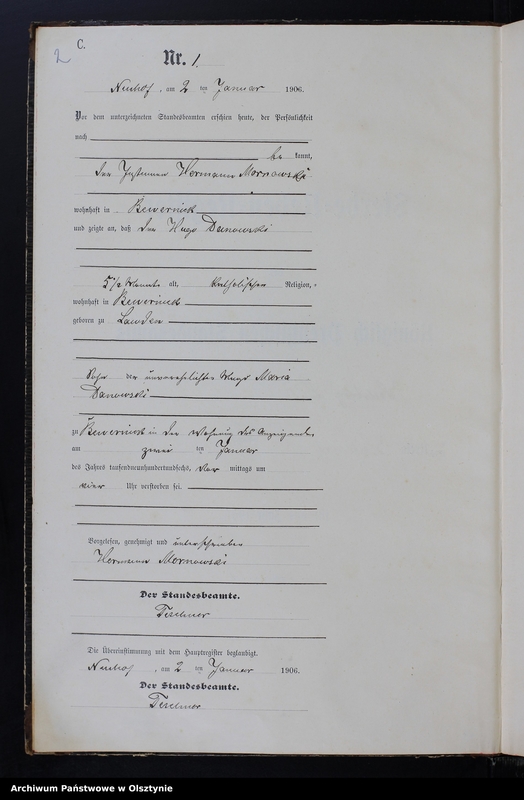 2
C.
Nr. 1.
Neuhof, am 2 ten Januar 1906.
Vor dem unterzeichneten Standesbeamten erschien heute, der Persönlichkeit
nach
be kannt,
der Instmann Hermann Mornowski
wohnhaft in Bewernick
und zeigte an, daß der Hugo Danowski
5 1/2 Monate alt, katholischer Religion,
wohnhaft in Bewernick
geboren zu Lauden
Sohn der unverehelichten Magd Maria
Danowski
zu Bewernick in der Wohnung des Anzeigenden
am zwei ten Januar
des Jahres tausendneunhundertundsechs, Vor mittags um
vier Uhr verstorben sei.
Vorgelesen, genehmigt und unterschrieben
Hermann Mornowski
Der Standesbeamte.
Die Übereinstimmung mit dem Hauptregister beglaubigt.
Neuhof, am 2 ten Januar 1906.
Der Standesbeamte.
Archiwum Państwowe w Olsztynie